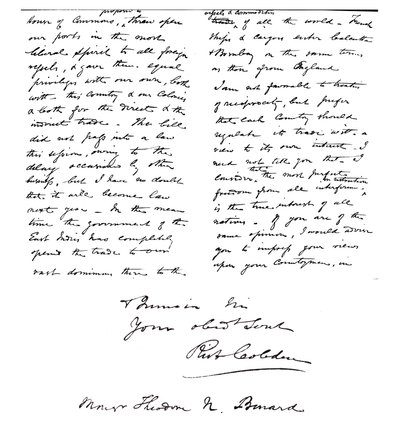 propose a
House of Commons, throw open
our ports in the most
liberal spirit to all foreign
vessels, & gave them equal
privileges with our own, both
with this country & our Colonies
& both for the direct & the
indirect trade. This bill
did not pass into a law
this session, owing to the
delay occasioned by other
business, but I have no doubt
that it will become law
next year. In the mean
time the government of the
East Indies has completely
opened the trade to our
vast dominions there to the
vessels & commodities
trade of all the world - French
ships & cargoes enter Calcutta
& Bombay on the same terms
as those from England
I am not favorable to treaties
of reciprocity, but prefer
that each Country should
regulate its trade with a
view to its own interest. I
need not tell you that I
consider that the most perfect
freedom from all interference,
is the true interest of all
nations - If you are of the
same opinion, I would advise
you to impress your views
upon your Countrymen, in
& I remain Sir
Your obedt Servt
Richd Cobden
Monsr Theodore N. Benard